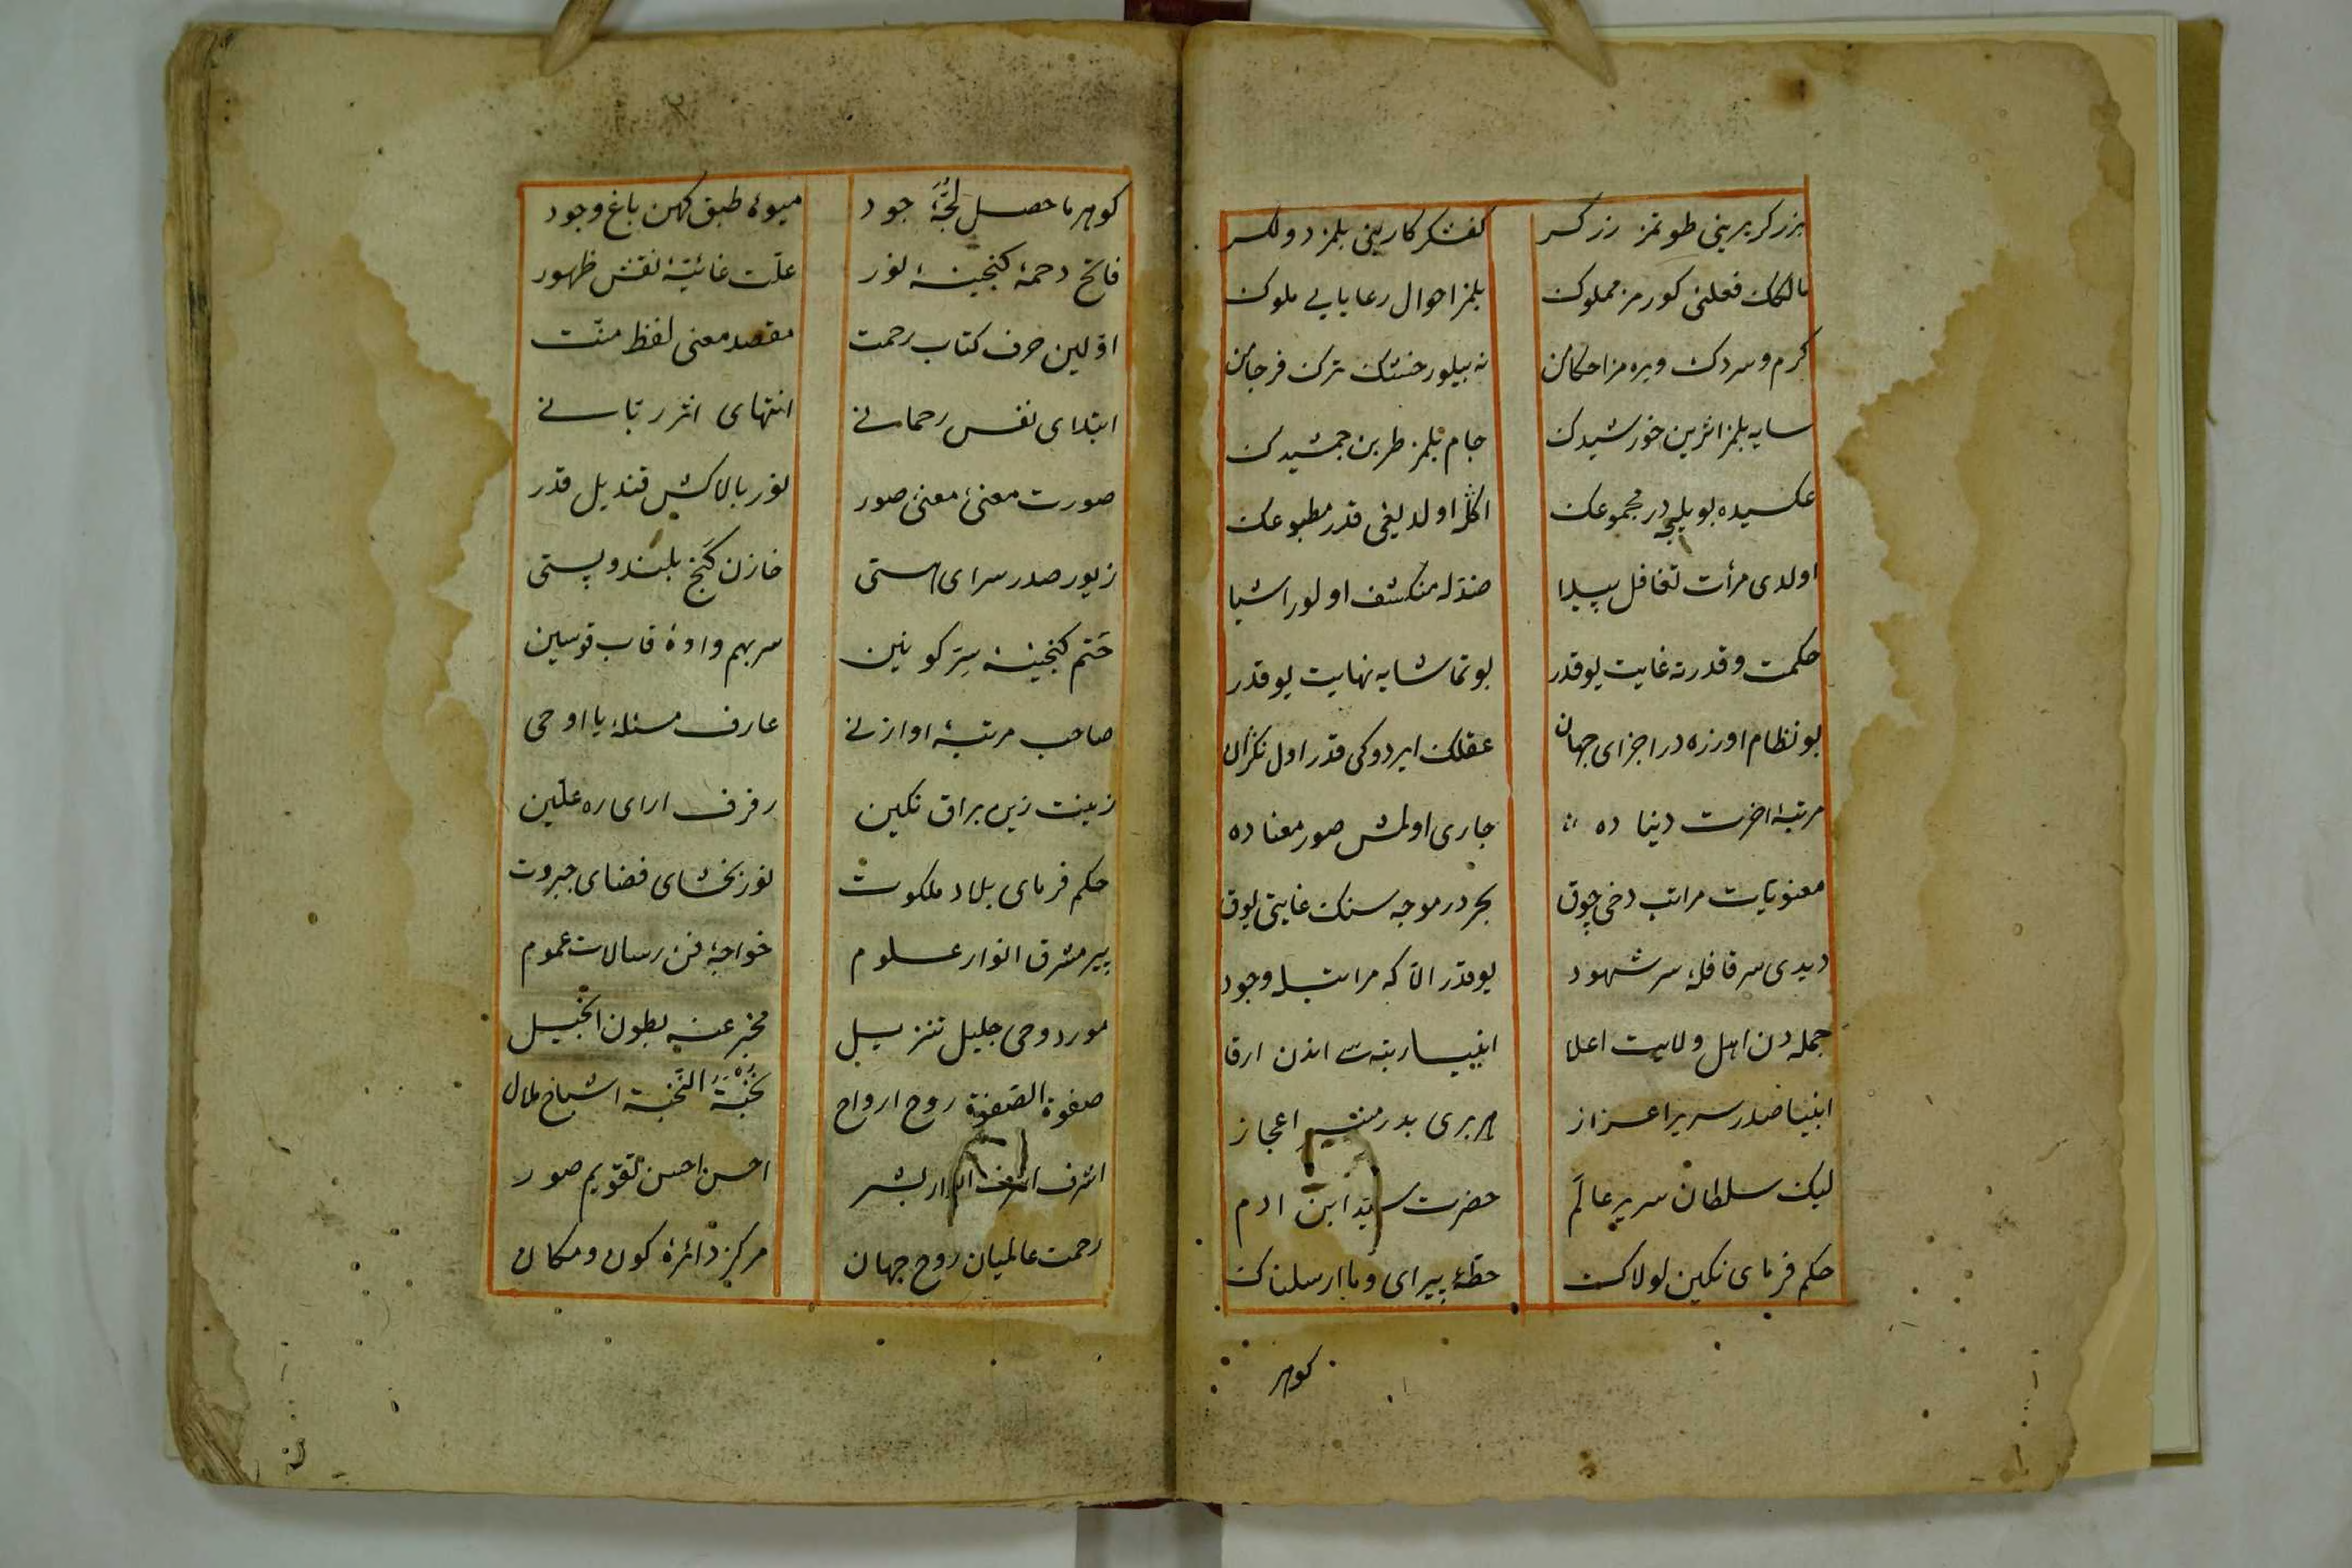 بزرکر یرینی طوتمز زرکر کفشکر کارینی بلمز دولکر
مالکک فعلنی کورمز مملوک بلمز احوال رعایایی ملوک
کرم و سردک ویره مز احکامن نه بیلور خشتک ترک فرجامن
سایه بلمز اثرین خورشیدک جام بلمز طربن جمشیدک
عکسیده بویله در مجموعک اکله اولدیغی قدر مطبوعک
اولدی مرأت تغافل پیدا ضدله منکشف اولور اشیا
حکمت و قدرته غایت یوقدر بو تماشایه نهایت یوقدر
بو نظام اوزره در اجزای جهان عقلک ایردوکی قدر اول نکران
مرتبهٔ اخرت دنیا ده جاری اولمش صور معنا ده
معنویات مراتب دخی چوق بحر در موجه سنک غایتی یوق
دیدی سر قافلهٔ سر شهود یوقدر الا که مراتبله وجود
جمله دن اهل ولایت اعلا انبیا رتبه سی اندن ارقا
انبیا صدر سریر اعزاز هر بری بدر منیر اعجاز
لیک سلطان سریر عالم حضرت سید ابن ادم
حکم فرمای نکین لولاک خطهٔ پیرای وما ارسلناک
کوهر
کوهر ما حصل لجّهٔ جود میوهٔ طبق کهن باغ وجود
فاتح دحمهٔ کنجینهٔ نور علت غائیهٔ نقش ظهور
اوّلین حرف کتاب رحمت مقصد معنی لفظ منّت
ابتدای نفس رحمانی انتهای اثر ربّانی
صورت معنیٔ معنیٔ صور نور بالاکش قندیل قدر
زیور صدر سرای هستی خازن کنج بلند و پستی
ختم کنجینهٔ سِرّ کونین سر بهم وادهٔ قاب قوسین
صاحب مرتبهٔ او ادنی عارف مسئلهٔ یا اوحی
زینت زین براق نکین رفرف ارای ره علیین
حکم فرمای بلاد ملکوت نور بخشای فضای جبروت
پیر مشرق انوار علوم خواجهٔ فن رسالات عموم
مورد وحی جلیل تنزیل مخبر عنه بطون انجیل
صفوة الصّفوة روح ارواح نُخبَةُ النّخبة اشباح ملال
اشرف اشرف ابرار بشر احسن احسن تقویم صور
رحمت عالمیان روح جهان مرکز دائرهٔ کون و مکان